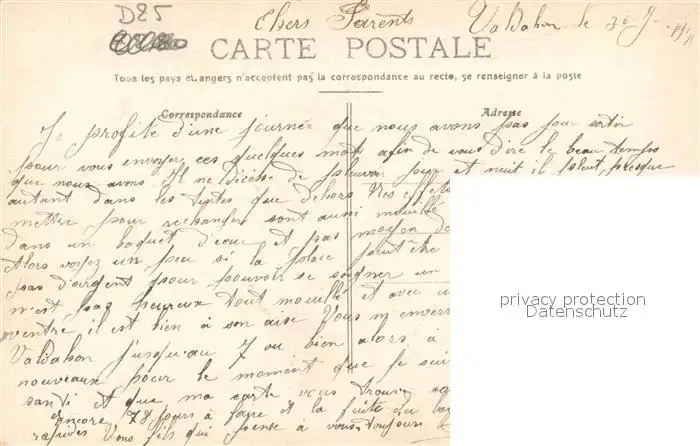 D25
Chers Parents Valdahon le 30 J
CARTE POSTALE
Tous les pays étrangers n'acceptent pas la correspondance au recto, se renseigner à la poste
Correspondance
Adresse
Je profite d'une journée que nous avons pas pour sortir
pour vous envoyer ces quelques mots afin de vous dire le beau temps
que nous avons. Il ne décesse de pleuvoir jour et nuit il pleut presque
autant dans les tentes que dehors Nes effets
mettre pour rechanger sont aussi mouillé
dans un baquet d'eau et pas moyen de
Alors voyez un peu si la place peut être
pas d'argent pour pouvoir se soigner un
n'est pas heureux tout mouillé et avec
ventre il est bien à son aise Vous m'enverr
Valdahon jusqu'au 7 ou bien alors à
nouveaux pour le moment que je suis
santé et que ma carte vous trouve
encore 78 jours à faire et la fuite du
rapides Vous fils qui pense à vous toujours
privacy protection
Datenschutz